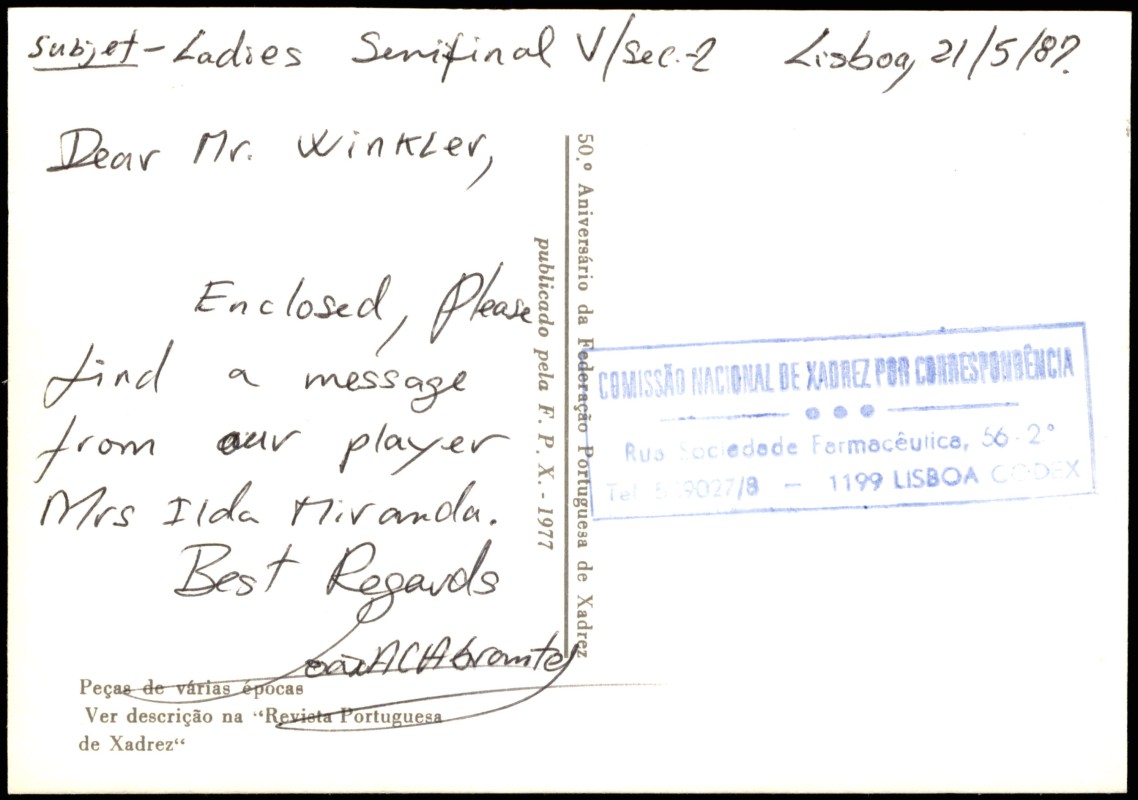 subjet - Ladies Semifinal V/Sec.-2 Lisboa, 21/5/87.
Dear Mr. Winkler,
Enclosed, Please
find a message
from our player
Mrs Ilda Miranda.
Best Regards
Peças de várias épocas
Ver descrição na “Revista Portuguesa
de Xadrez“
publicado pela F. P. X. - 1977
50.º Aniversário da Federação Portuguesa de Xadrez
COMISSÃO NACIONAL DE XADREZ POR CORRESPONDÊNCIA
Rua Sociedade Farmacêutica, 56 - 2°
Tel. 9027/8 — 1199 LISBOA CODEX